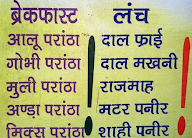 ब्रेकफास्ट लंच
आलू परांठा दाल फ्राई
गोभी परांठा दाल मखनी
मुली परांठा राजमाह
अण्डा परांठा मटर पनीर
मिक्स परांठा शाही पनीर